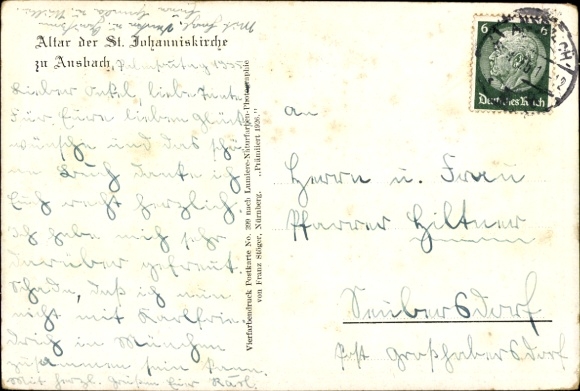 Mit
Altar der St. Johanniskirche
zu Ansbach
1935
Lieber Onkel liebe Tante
Für Eure lieben Glück
wünsche und das schö
ne Buch danke ich
Euch recht herzlich.
Ich habe mich sehr
darüber gefreut.
Schade, daß ich nun
nicht mit Karlfrie
drich in München
zusammen sein kann.
Mit herzl. Grüßen Eur Karl.
Vierfarbendruck Postkarte No. 399 nach Lumiere-Naturfarben-Photographie
von Franz Stöger, Nürnberg. „Prämiiert 1926."
6 6
Deutsches Reich
An
Herrn u. Frau
Pfarrer Hiltner
Seubersdorf
Post Großhabersdorf